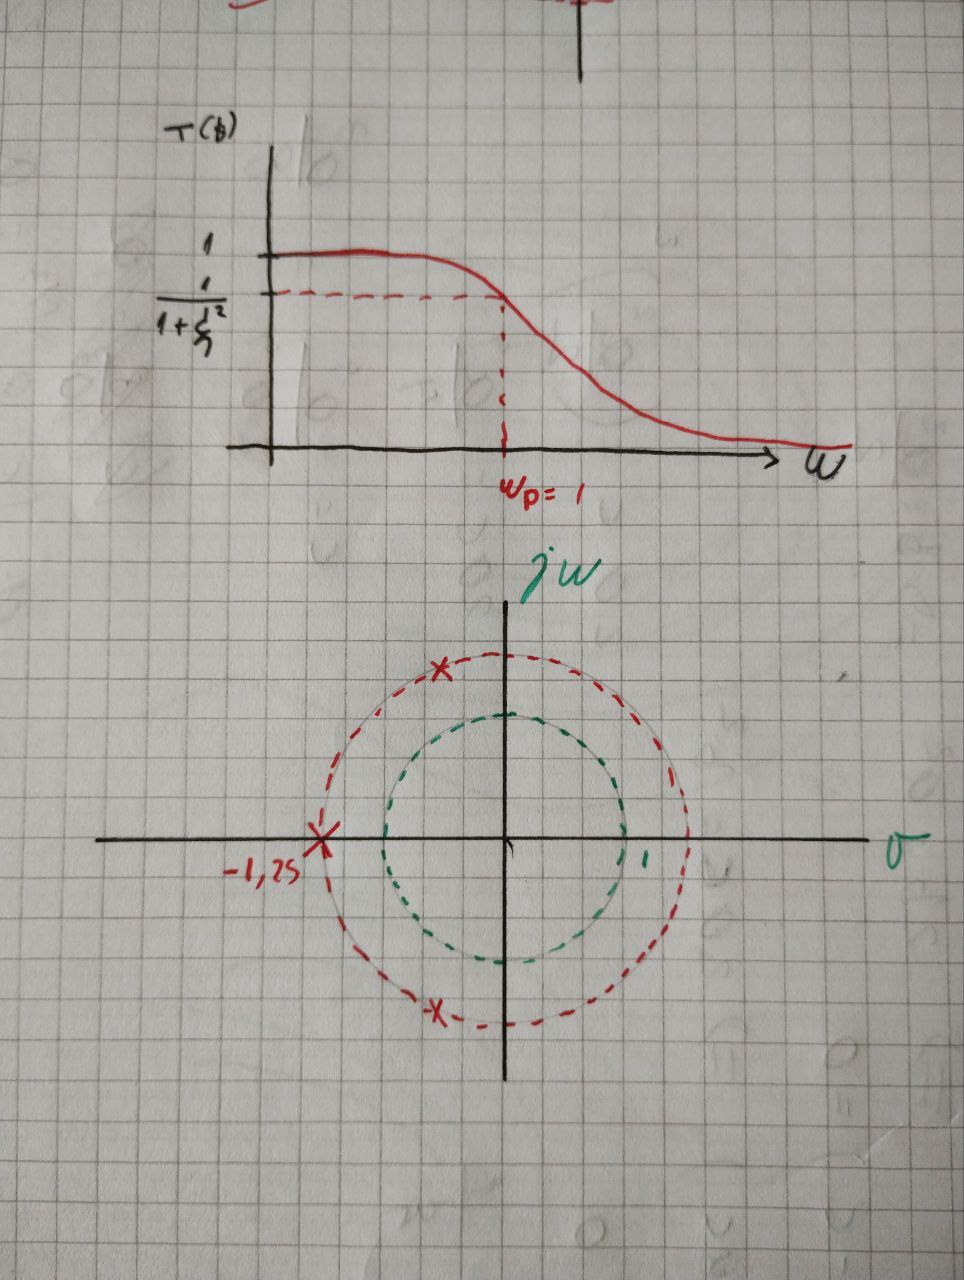 T($)
1
1
1+ξ²
ω
ωp = 1
jω
-1,25
1
σ